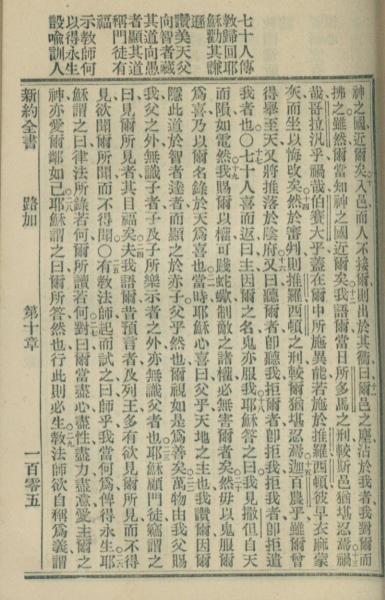 七十人傳
教歸回耶
穌勸其謙
遜
讚美天父
向智者藏
其道向愚
者顯其道
稱門徒有
福
示教師何
以得永生
設喩訓人
神之國近爾矣入邑而人不接爾則出於其衢曰爾邑之塵沾於我者我對爾而
拂之雖然爾當知神之國近爾矣我語爾當日所多馬之刑較斯邑猶堪忍焉禍
哉哥拉汛乎禍哉伯賽大乎蓋在爾中所施異能若施於推羅西頓彼早衣麻蒙
灰而坐以悔改矣然於審判則推羅西頓之刑較爾猶堪忍焉迦百農乎雖爾曾
得舉至天又將推落於陰府又曰聽爾者卽聽我拒爾者卽拒我拒我者卽拒遣
我者也○七十人喜而返曰主因爾之名鬼亦服我耶穌答之曰我見撒但自天
而隕如電然我賜爾以權可踐蛇蠍制敵之諸權必無害爾者矣然毋以鬼服爾
爲喜乃以爾名錄於天爲喜也當時耶穌心喜曰父乎天地之主也我讚爾因爾
隱此道於智者達者而顯之於赤子父乎然也爾視如是爲善矣萬物由我父賜
我父之外無識子者子及子所樂示者之外亦無識父者也耶穌顧門徒竊謂之
曰見爾所見者其目福矣夫我語爾昔預言者及列王多有欲見爾所見而不得
見欲聞爾所聞而不得聞○有教法師起而試之曰師乎我當何爲俾得永生耶
穌謂之曰律法所錄若何爾所讀若何對曰爾當盡心盡性盡力盡意愛主爾之
神亦愛爾鄰如己耶穌謂之曰爾所答然也行此則必生教法師欲自稱爲義謂
新約全書 路加 第十章 一百零五